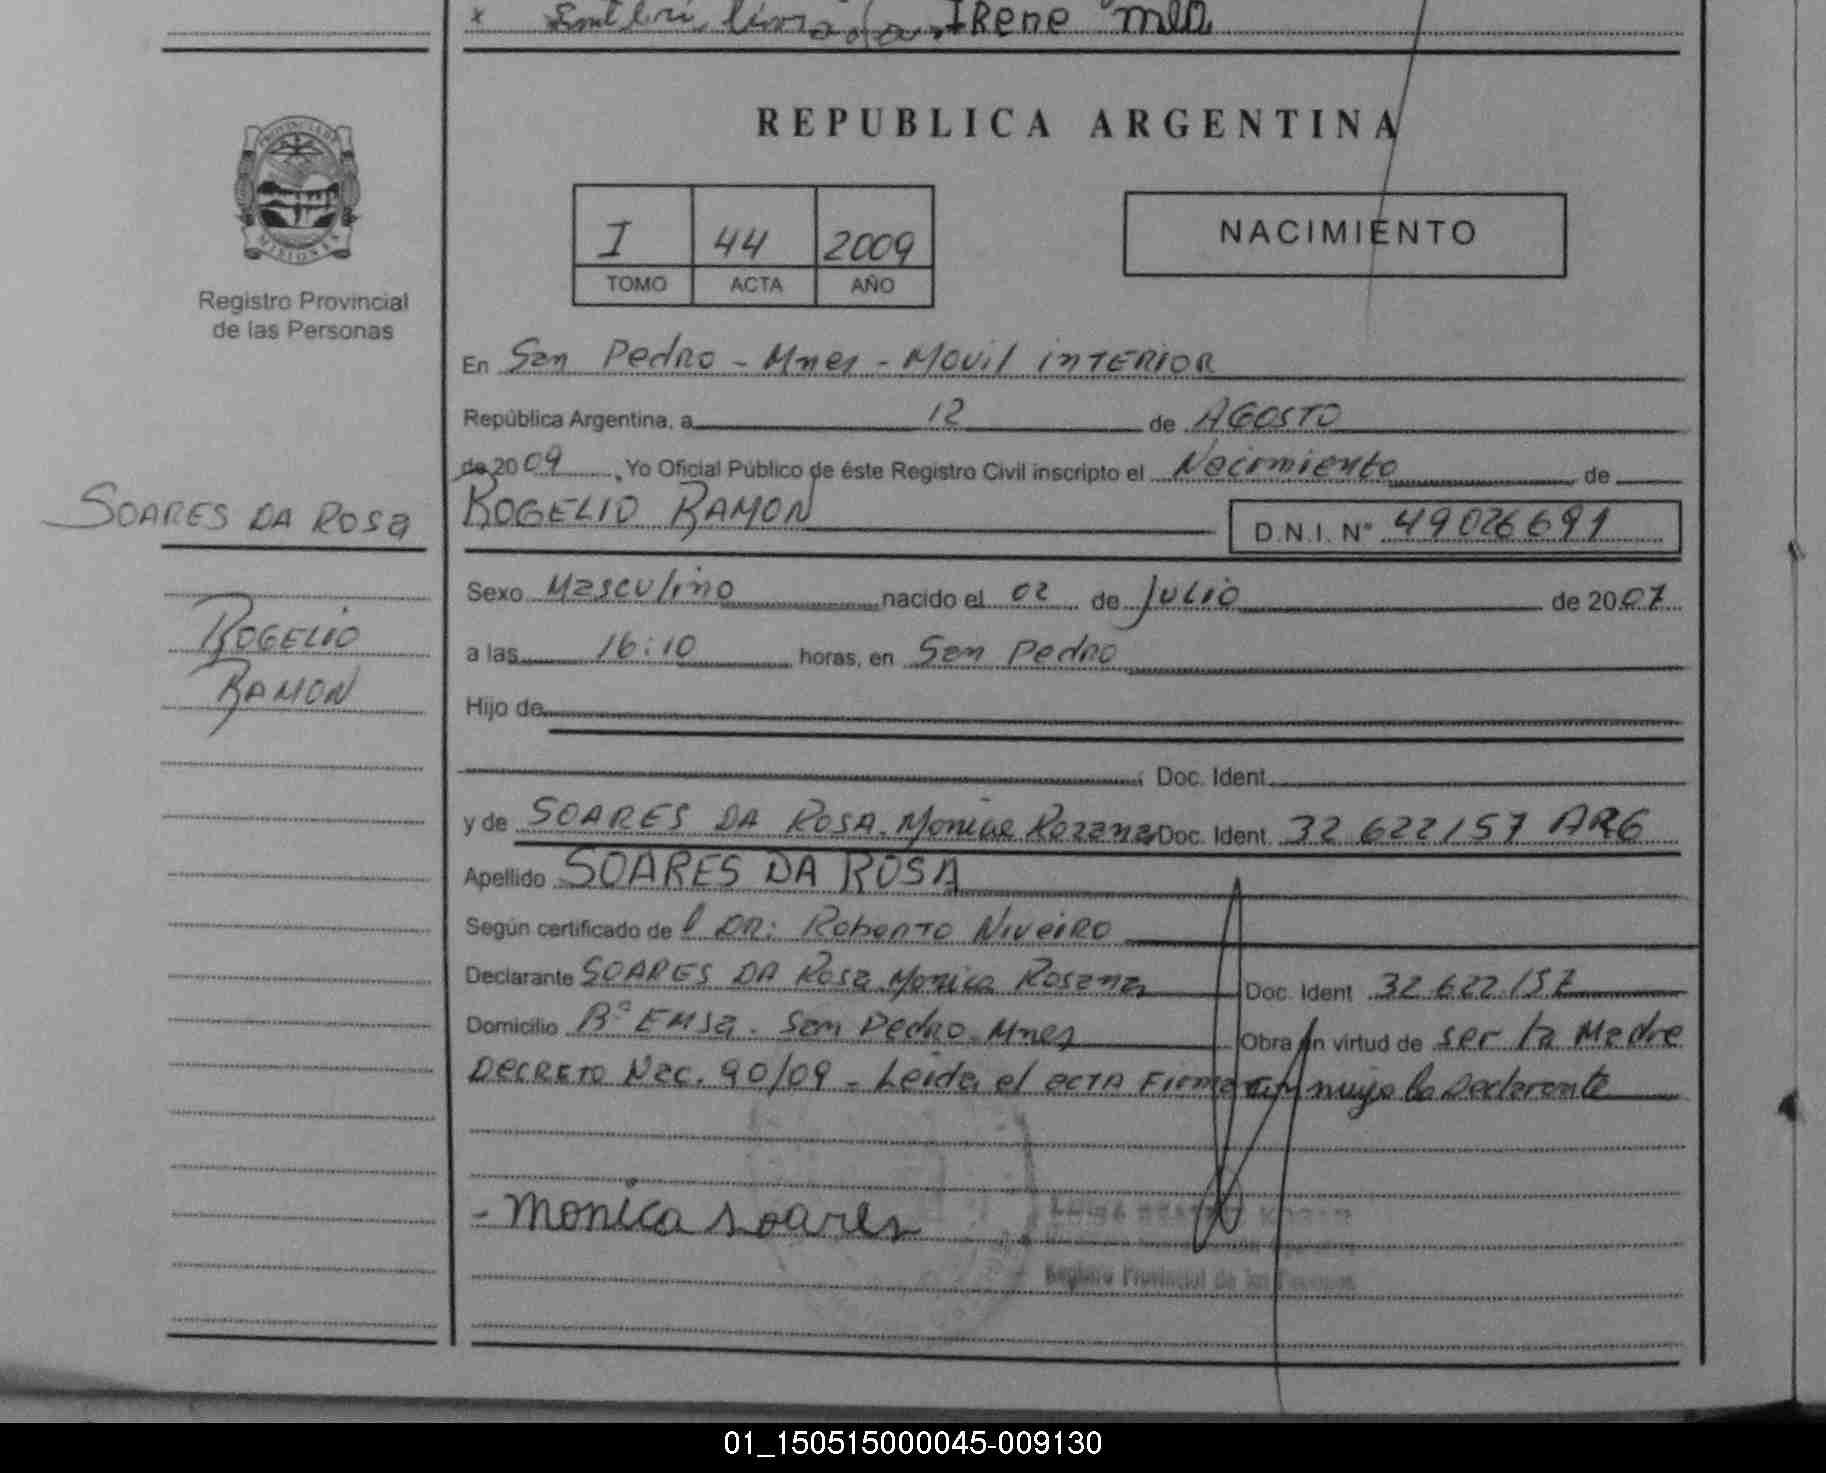 Irene mla
REPUBLICA ARGENTINA
PROVINCIA DE
MISIONES
I 44 2009
TOMO ACTA AÑO
NACIMIENTO
Registro Provincial
de las Personas
En San Pedro - Mnes - Movil inTERiOR
República Argentina, a 12 de AGOSTO
de 2009, Yo Oficial Público de éste Registro Civil inscripto el Nacimiento de
SOARES DA ROSa
ROGELIO RAMON D.N.I. N° 49026691
Sexo Masculino nacido el 02 de Julio de 2007
ROGELIO
a las 16:10 horas, en San Pedro
RAMON
Hijo de
Doc. Ident.
y de SOARES DA ROSA. Monica Rozana Doc. Ident. 32 622157 ARG
Apellido SOARES DA ROSA
Según certificado de l DR: Roberto Niveiro
Declarante SOARES DA Rosa Monica Rosana Doc. Ident 32.622.157
Domicilio B° EMSa. San Pedro. Mnes Obra en virtud de ser la Madre
DECRETO Nac. 90/09 - Leida el acta Firma mujo la Declarante
- monica soares
Registro Provincial de las Personas
01_150515000045-009130